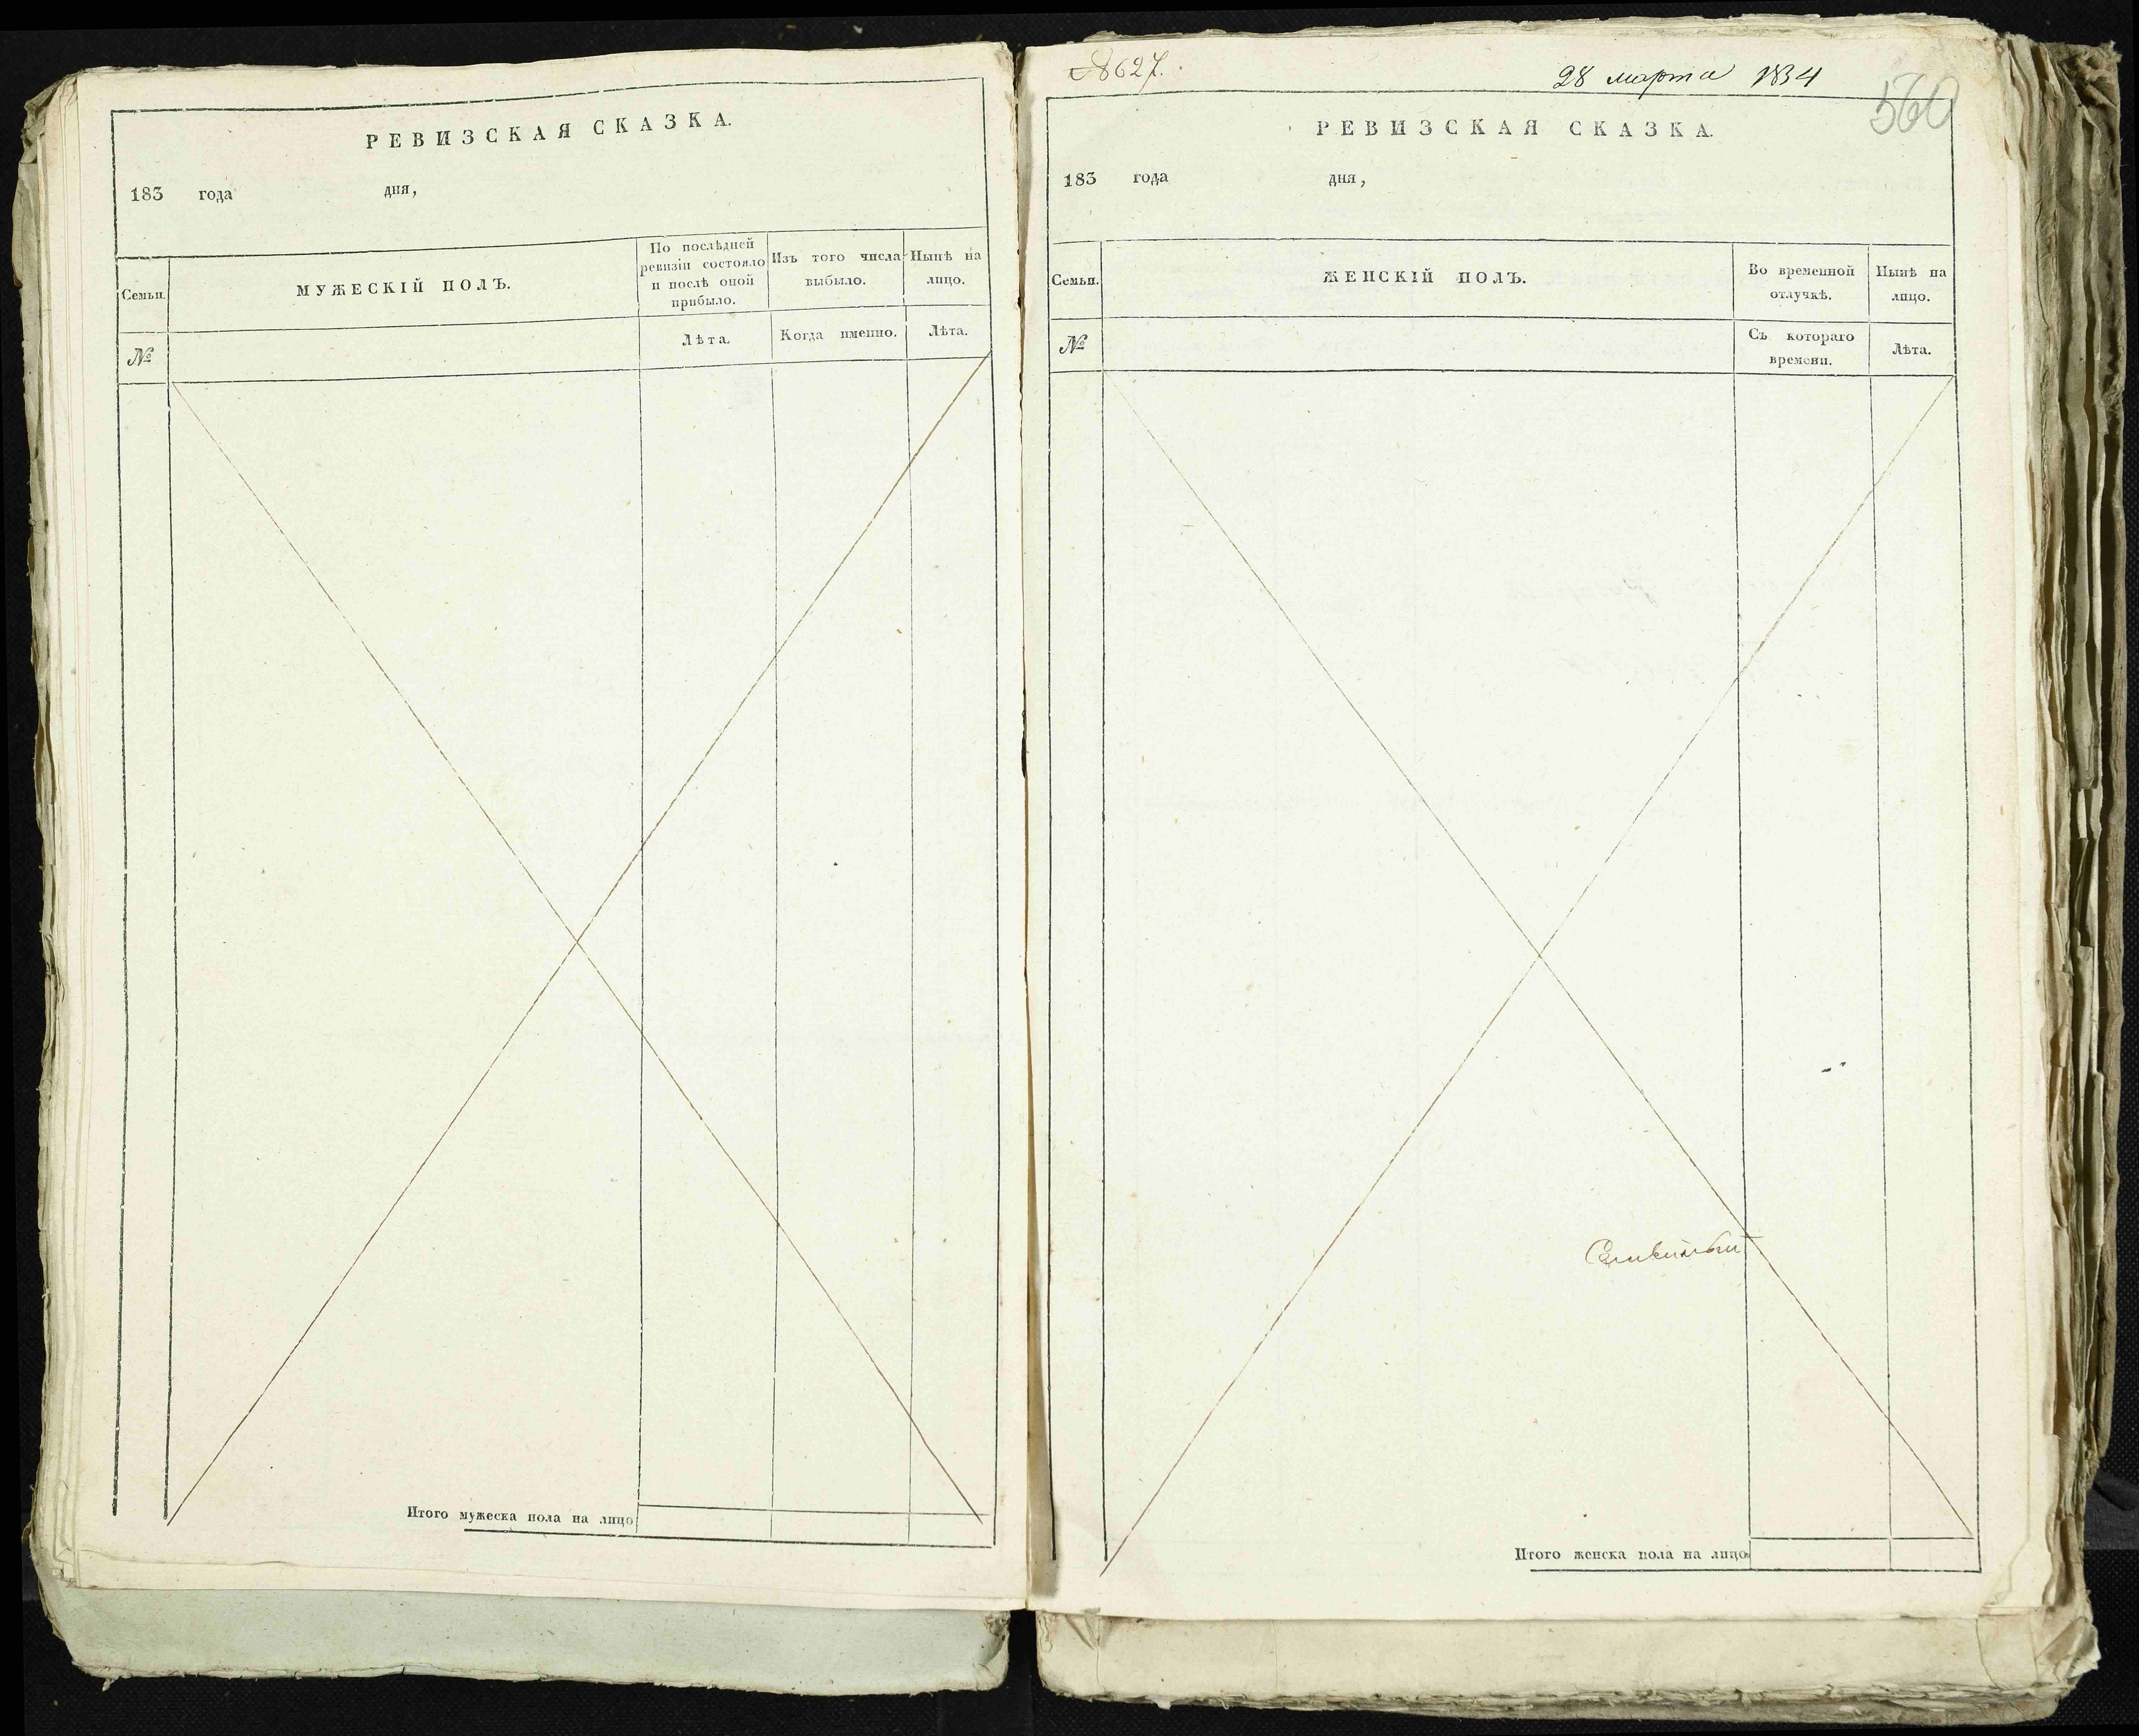 РЕВИЗСКАЯ СКАЗКА.
183 года дня,
Семьи.
МУЖЕСКІЙ ПОЛЪ.
По послѣдней
ревизіи состояло
и послѣ оной
прибыло.
Изъ того числа
выбыло.
Нынѣ на
лицо.
№
Лѣта.
Когда именно.
Лѣта.
Итого мужеска пола на лицо
8627.
28 марта 1834
560
РЕВИЗСКАЯ СКАЗКА.
183 года дня,
Семьи.
ЖЕНСКІЙ ПОЛЪ.
Во временной
отлучкѣ.
Нынѣ на
лицо.
№
Съ котораго
времени.
Лѣта.
Итого женска пола на лицо